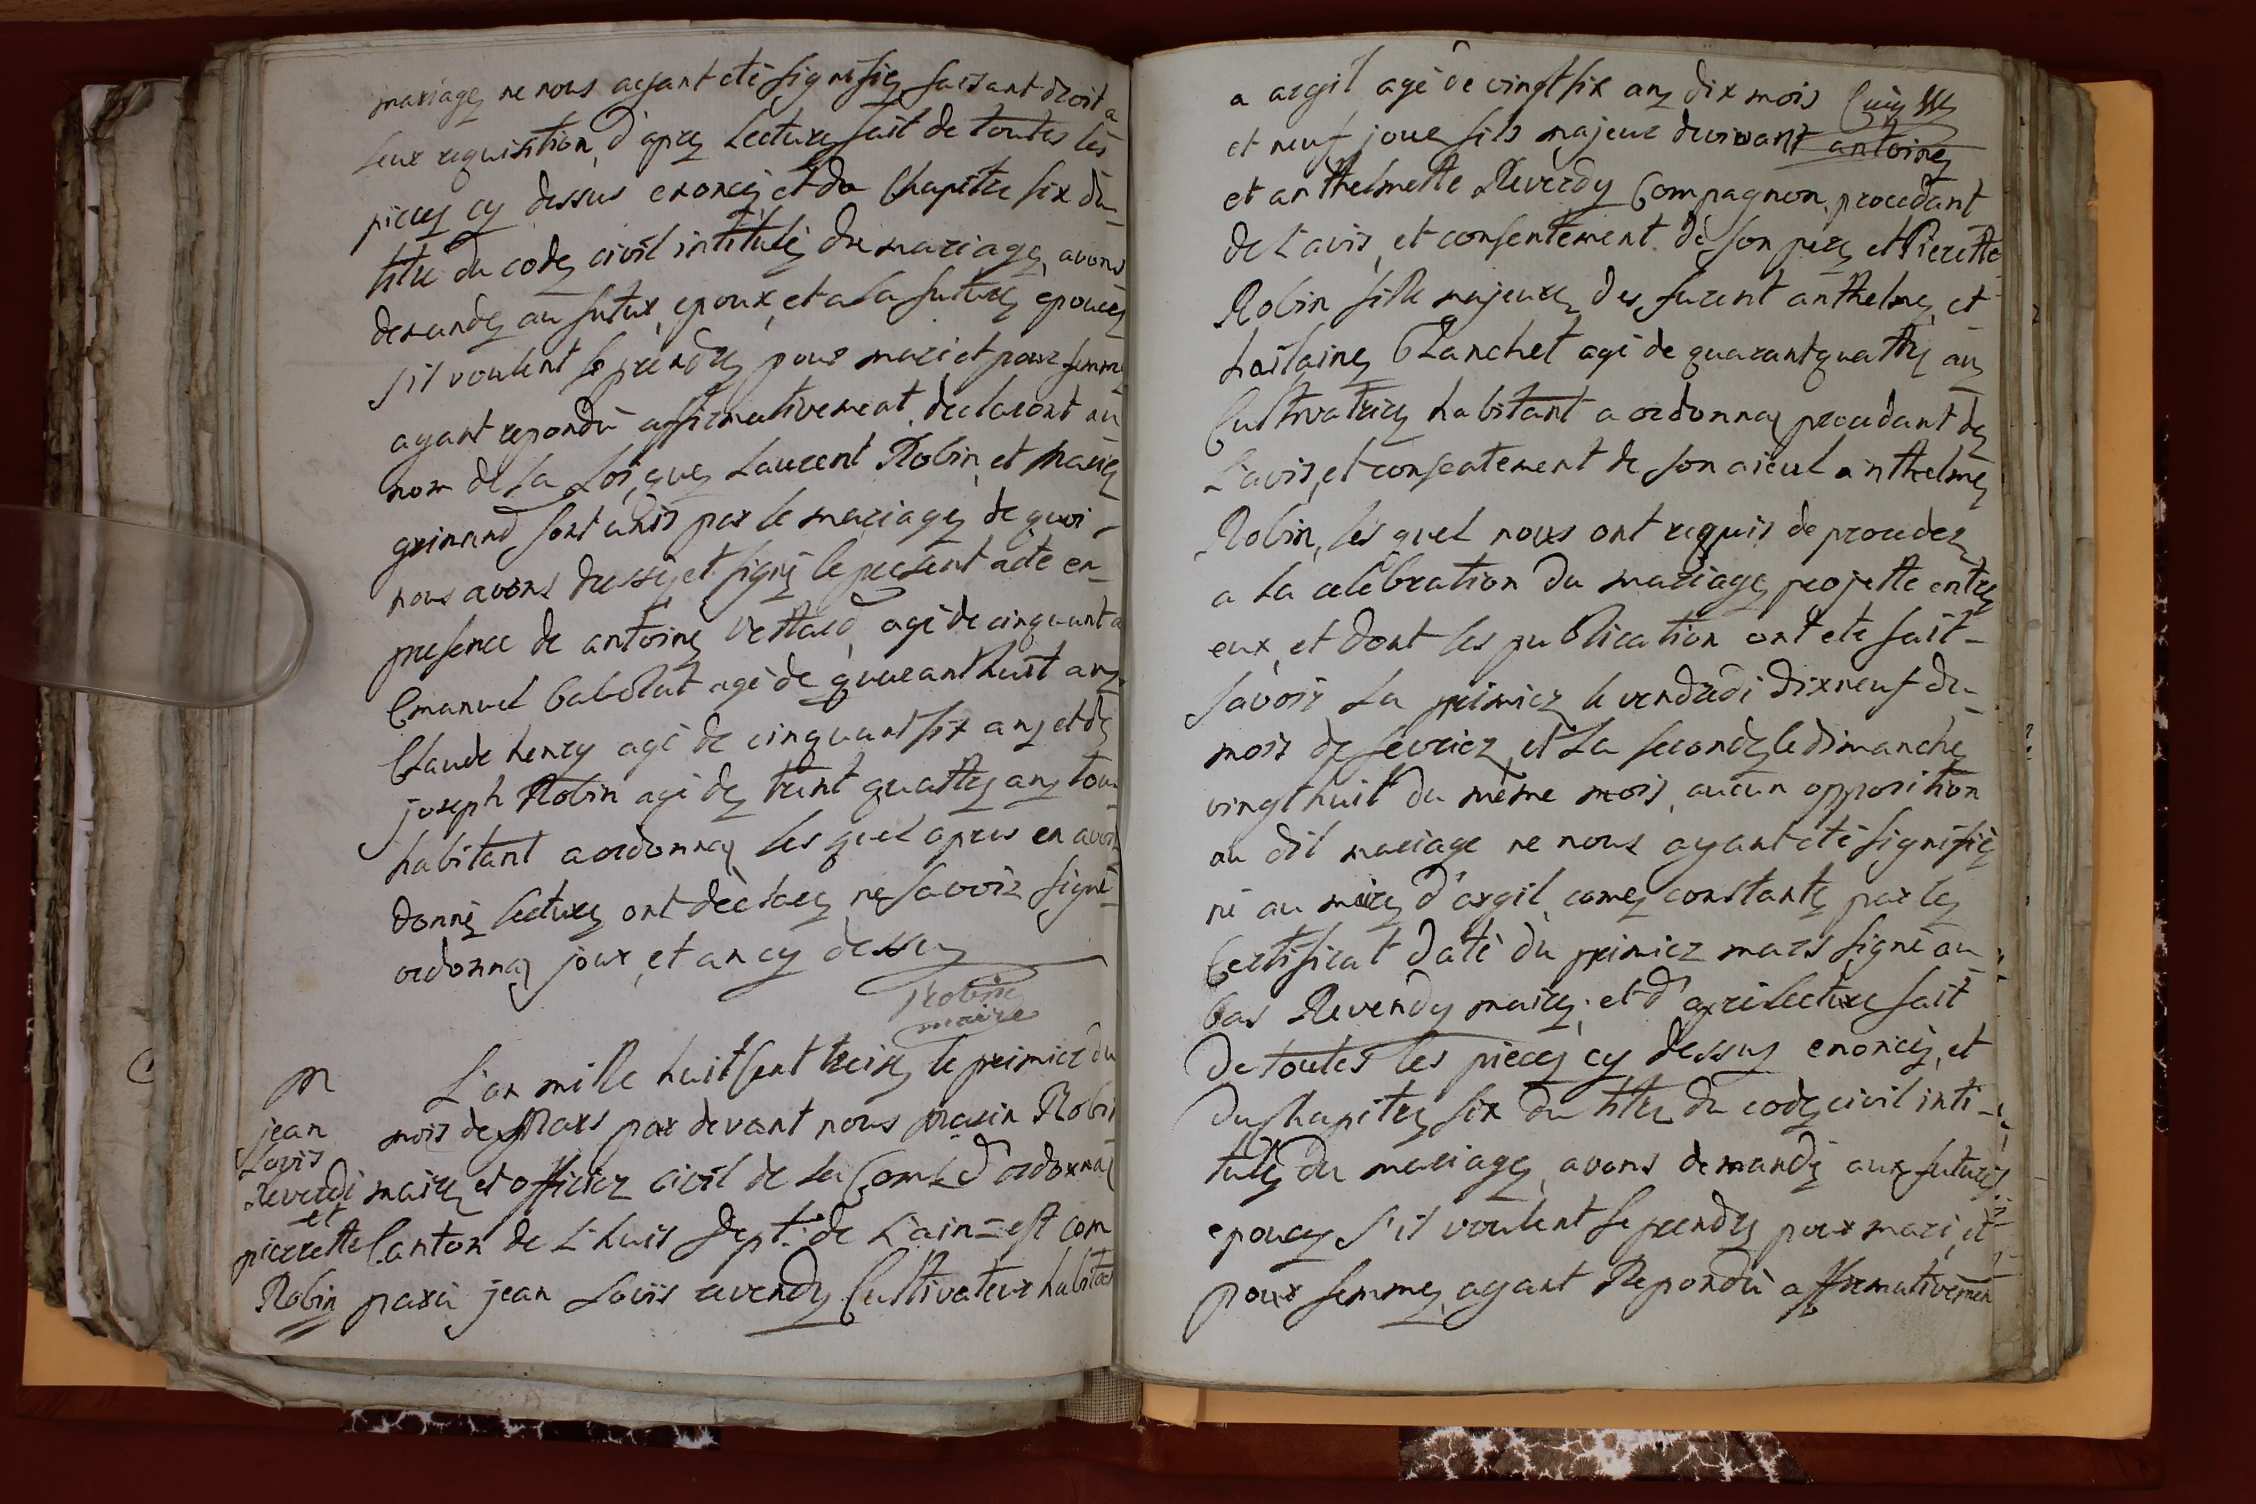 mariage ne nous ayant eté signifiez faisant droit a
leur requisition, d'aprez lecture fait de toutes les
pieces cy dessus enoncez et du Chapitre six du
titre du code civil intitulé du mariage, avons
demandez au futur epoux, et a la future epouse
s'il voulent se prendre pour mari et pour femme
ayant repondu affirmativement, declaront au
nom de la Loi que Laurent Robin et marie
grinand sont unis par le mariage de quoi
nous avons dressez et signé le present acte en
presence de antoine agé de cinquant
Emanuel agé de quarant huit ans
Claude henry agé de cinquant six ans et de
joseph Robin agé de trent quattre ans tou
habitant a ordonnaz les quel apres en avoir
donnéz lecture ont declarez ne savoir signé
ordonnaz jour et an cy dessus
Robin
maire
M
jean
Louis
Reverdi
et
pierrette
Robin
L'an mille huit sent treize le primier du
mois de Mars par devant nous Robin
maire et officier civil de la Com.e d'ordonnaz
Canton de L'huis dept. de L'ain = est com
paru jean Louis reverdy Cultivateur habitant
a argil agé de vingt six ans dix mois
et neuf jour fils majeur de vivant antoine
et anthelmette Reverdy Compagnon, procedant
de l'avis, et consentement de son pere et Pierette
Robin fille majeure des furent anthelme et
hailaine Planchet agé de quarant quattre ans
Cultivatrice habitant a ordonnaz procedant de
L'avis, et consentement de son aieul anthelme
Robin, les quel nous ont requis de proceder
a la celebration du mariage projette entre
eux, et dont les publication ont eté fait
savoir la primier le vendredi dix neuf du
mois de fevrier et la seconde le dimanche
vingt huit du même mois, aucun opposition
au dit mariage ne nous ayant eté signifiéz
ni au maire d'argil, come constante par le
Certificat daté du primier mars signé au
bas Reverdy maire; et d'apres lecture fait
de toutes les pieces cy dessus enoncéz, et
du Chapitre six du titre du code civil inti-
tulé du mariage, avons demandéz aux futures
epouces s'il voulent se prendre pour mari, et
pour femme, ayant Repondu affirmativemen